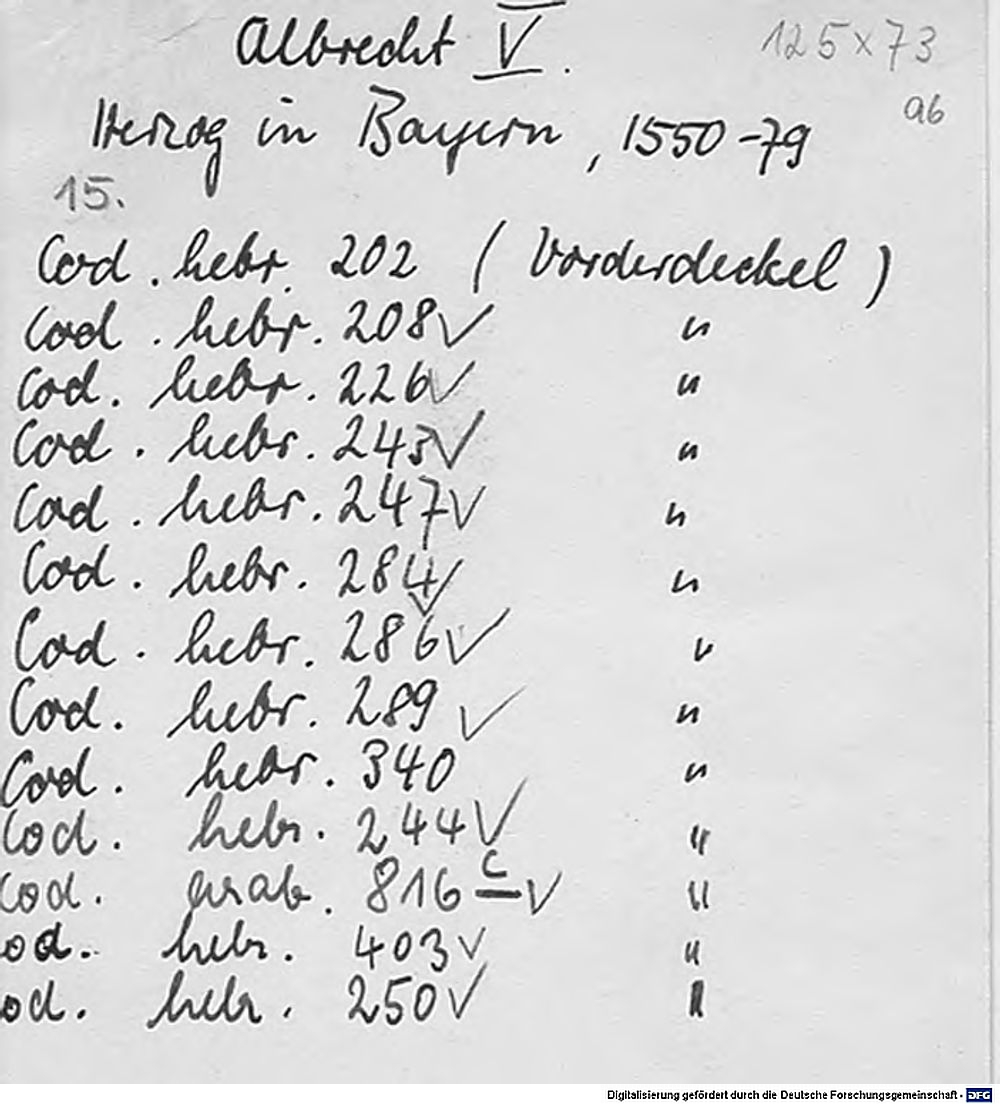 Albrecht V. 125 x 73
Herzog in Bayern, 1550-79 ab
15.
Cod. hebr. 202 (Vorderdeckel)
Cod. hebr. 208 √ "
Cod. hebr. 226 √ "
Cod. hebr. 243 √ "
Cod. hebr. 247 √ "
Cod. hebr. 284 √ "
Cod. hebr. 286 √ "
Cod. hebr. 289 √ "
Cod. hebr. 340 "
Cod. hebr. 244 √ "
Cod. arab. 816 c √ "
od. hebr. 403 √ "
od. hebr. 250 √ "
Digitalisierung gefördert durch die Deutsche Forschungsgemeinschaft - DFG